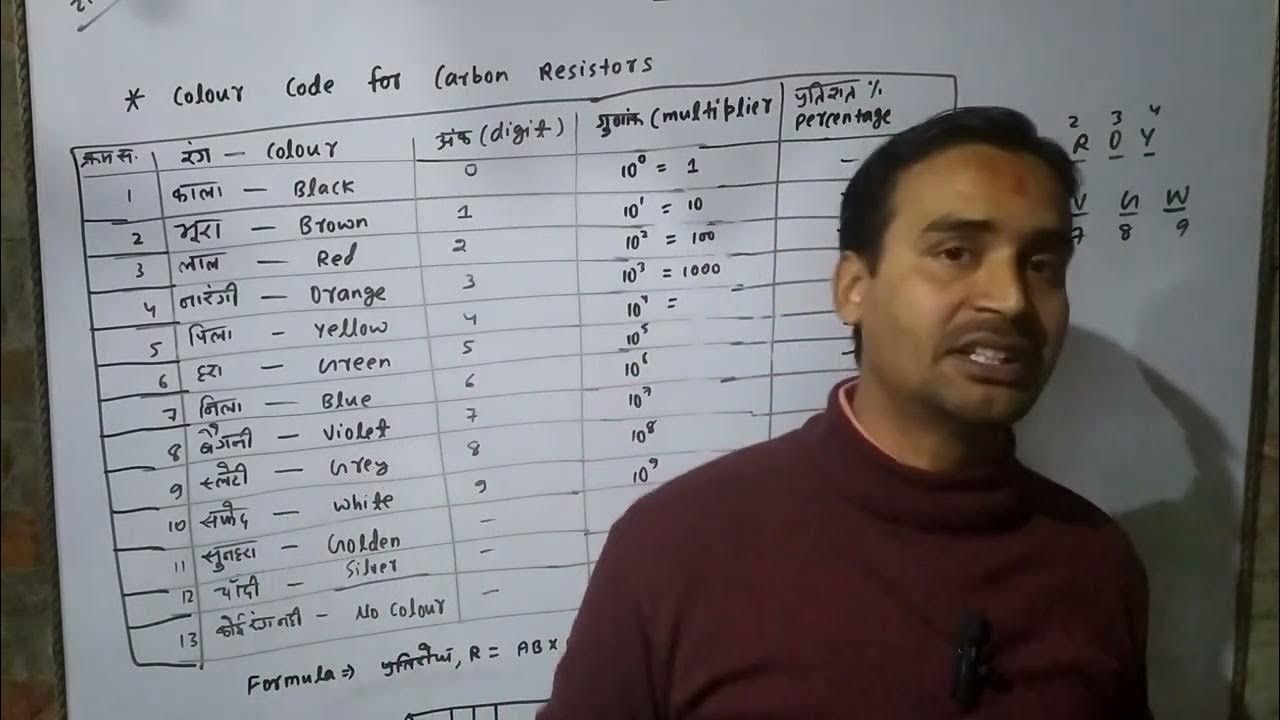 * Colour Code for Carbon Resistors
क्रम स. रंग - Colour अंक (digit) गुणांक (multiplier प्रतिशत % percentage
1 काला - Black 0 10⁰ = 1 -
2 भूरा - Brown 1 10¹ = 10
3 लाल - Red 2 10² = 100
4 नारंगी - Orange 3 10³ = 1000
5 पिला - Yellow 4 10⁴ =
6 हरा - Green 5 10⁵
7 निला - Blue 6 10⁶
8 बैगनी - Violet 7 10⁷
9 स्लेटी - Grey 8 10⁸
10 सफेद - White 9 10⁹
11 सुनहरा - Golden -
12 चाँदी - Silver -
13 कोई रंग नही - No Colour -
Formula ⇒ R = AB ×
2 3 4
R O Y
V G W
7 8 9